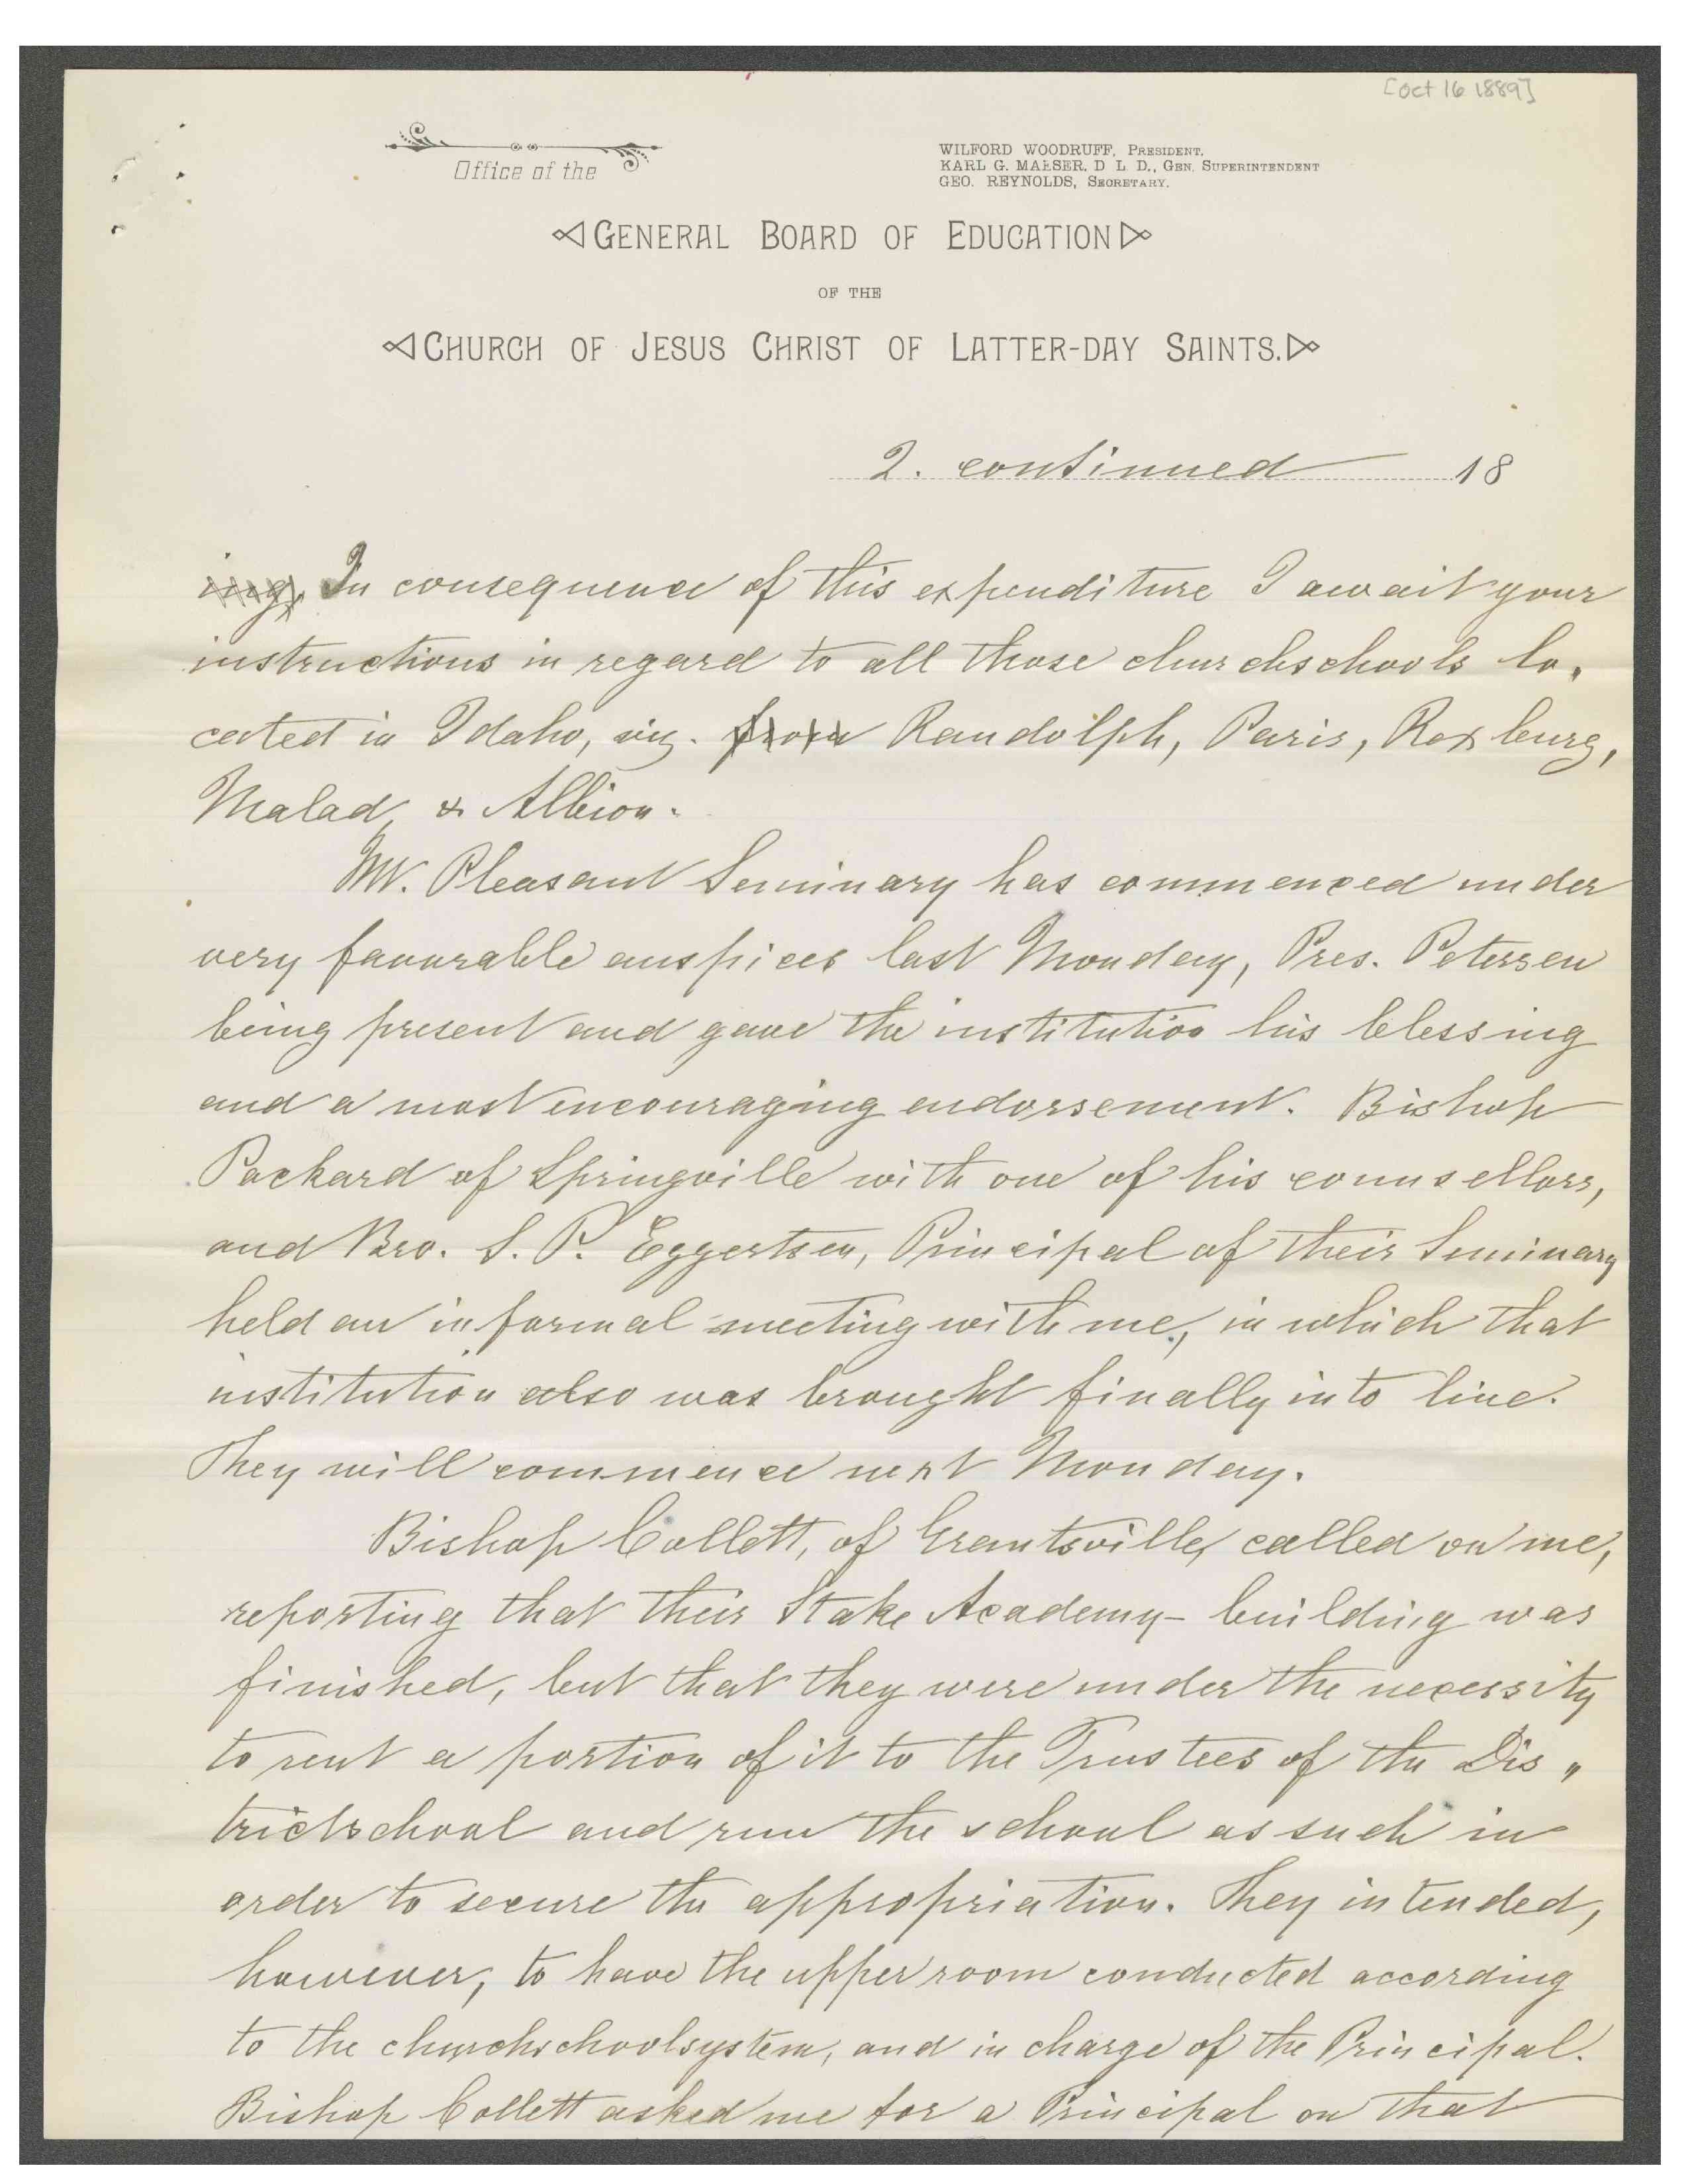 [Oct 16 1889]
Office of the
WILFORD WOODRUFF, PRESIDENT.
KARL G. MAESER, D L D., GEN. SUPERINTENDENT
GEO. REYNOLDS, SECRETARY.
GENERAL BOARD OF EDUCATION
OF THE
CHURCH OF JESUS CHRIST OF LATTER-DAY SAINTS.
2. continued 18
ing. In consequence of this expenditure I await your
instructions in regard to all those churchschools lo„
cated in Idaho, viz. from Randolph, Paris, Rexburg,
Malad, & Albion.
Mt. Pleasant Seminary has commenced under
very favorable auspices last Monday, Pres. Petersen
being present and gave the institution his blessing
and a most encouraging endorsement. Bishop
Packard of Springville with one of his counsellors,
and Bro. S. P. Eggertsen, Principal of their Seminary
held an informal meeting with me, in which that
institution also was brought finally into line.
They will commence next Monday.
Bishop Collett, of Grantsville, called on me,
reporting that their Stake Academy-building was
finished, but that they were under the necessity
to rent a portion of it to the Trustees of the Dis„
trictschool and run the school as such in
order to secure the appropriation. They intended,
however, to have the upper room conducted according
to the churchschoolsystem, and in charge of the Principal.
Bishop Collett asked me for a Principal on that